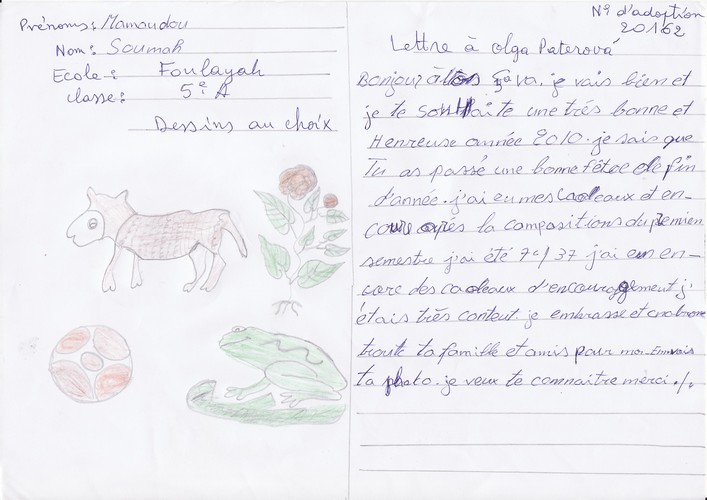 Prénoms: Mamoudou
Nom: Soumah
Ecole: Foulayah
classe: 5e A
Dessins au choix
N° d'adoption
20162
Lettre à olga Paterová
Bonjour ça va. je vais bien et
je te souhaite une très bonne et
Henreuse année 2010. je sais que
Tu as passé une bonne fête de fin
d'année. j'ai eu mes Cadeaux et en-
core après la compositions du premien
semestre j'ai été 7e/37 j'ai eu en-
core des cadeaux d'encouragement j'
étais très content je embrasse et
toute ta famille et amis pour moi. Envais
ta photo. je veux te connaitre merci ./.